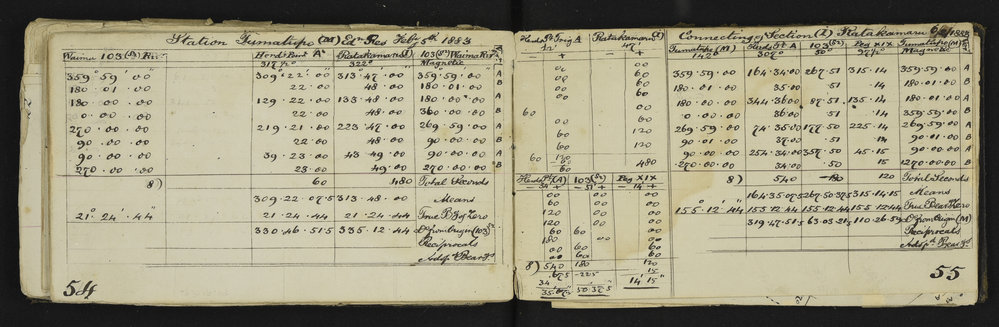 Station Tumatiipo (M) Edn Res Feby 5th 1883
Waima 103 (S2) Riv Herds Point A Ratakamaru (I) 103 (S2) Waima Riv
317½° 322° Magnetic
359°.59'.00 309°.22'.00 313°.47'.00 359°.59'.00 A
180.01.00 22.00 48.00 180.01.00 B
180.00.00 129.22.00 133.48.00 180.00.00 A
0.00.00 22.00 48.00 360.00.00 B
270.00.00 219.21.00 223.47.00 269.59.00 A
90.00.00 22.00 48.00 90.00.00 B
90.00.00 39.23.00 43.49.00 90.00.00 A
270.00.00 23.00 49.00 270.00.00 B
8) 60 480 Total Seconds
309.22.07.5 313.48.00 Means
21°.24'.44" 21.24.44 21.24.44 True Brg of Zero
330.46.51.5 335.12.44 Do from Origin (103 S2)
Reciprocals
Adjd. Bearings
54
Herds Pt Trig A Ratakamaru (I)
12' 47'
00 00
00 60
60 60
00 60
00
60 00
00 60
00 120
00 60
60 120
60 480
Herds Pt (A) 103 (S2) Peg XIX
34 + 51 + 14 +
00 00 00
60 00 00
120 00 00
120 00 00
60 60 00
180 00 00
00 60 60
00 60 60
8) 540 180 120
67.5 22.5 15
34
35.07.5 50.37.5 14'.15"
Connecting Section (I) Ratakamaru 6/2/1883
Tumatiipo (M) Herds Pt A 103 (S2) Peg XIX Tumatiipo (M)
142° 307° 50° 97½° Magnetic
359.59.00 164.34.00 267.51 315.14 359.59.00 A
180.01.00 35.00 .51 .14 180.01.00 B
180.00.00 344.36.00 87.51 135.14 180.01.00 A
0.00.00 36.00 .51 .14 359.59.00 B
269.59.00 74.35.00 177.50 225.14 269.59.00 A
90.01.00 37.00 .51 .14 90.01.00 B
90.00.00 254.34.00 357.50 45.15 90.00.00 A
270.00.00 34.00 .50 15 270.00.00 B
8) 540 120 Total Seconds
164.35.07.5 267.50.37.5 315.14.15 Means
155°.12'.44" 155.12.44 155.12.44 155.12.44 True Bear Zero
319.47.51.5 63.03.21.5 110.26.59 Do from Origin (M)
Reciprocals
Adjd. Bearings
55